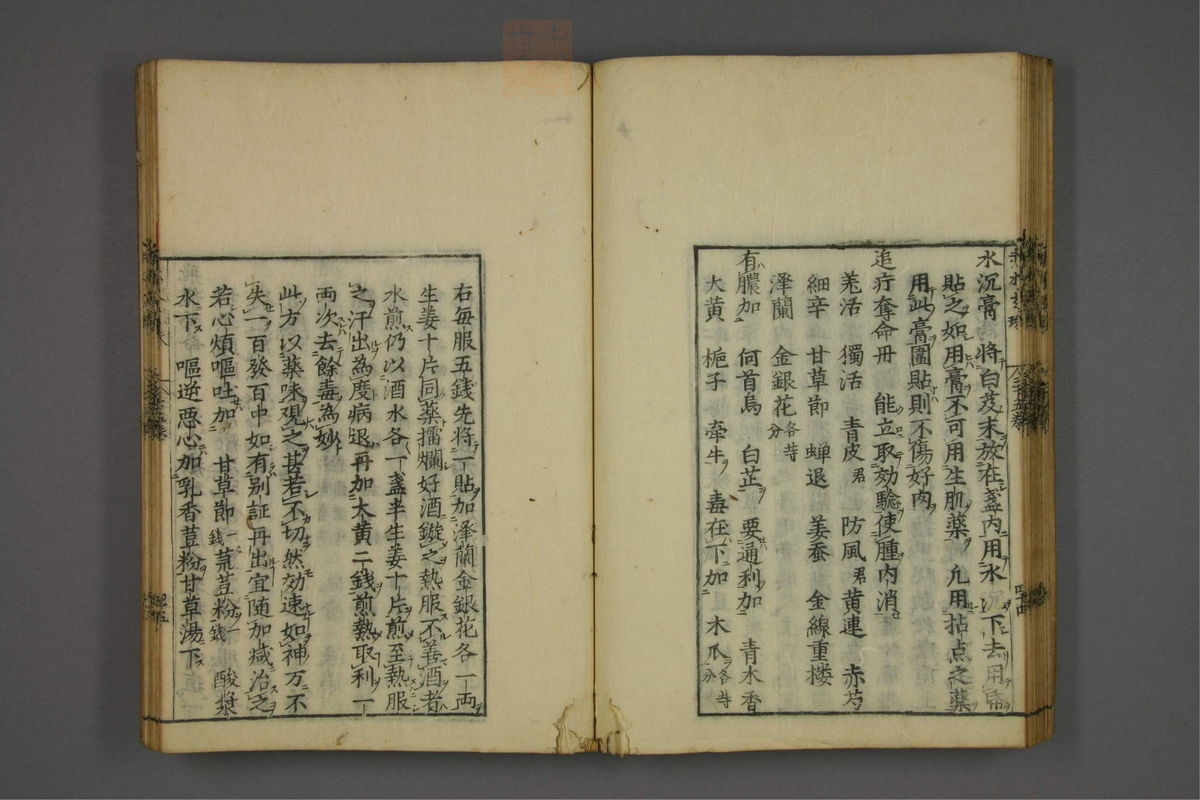 水沉膏 將白芨末放在盞內用水沉下去用帋
貼之如用膏不可用生肌藥 凢用拈点之藥
用此膏圍貼則不傷好肉
追疔奪命丹 能立取効驗使腫內消
羗活 獨活 青皮君 防風君 黄連 赤芍
細辛 甘草節 蝉退 姜蚕 金線重楼
泽蘭 金銀花各等分
有膿加 何首烏 白芷 要通利加 青木香
大黄 栀子 牵牛 毒在下加 木爪各等分
右毎服五錢先將一貼加泽蘭金銀花各一両
生姜十片同藥擂爛好酒鏇之熱服不善酒者
水煎仍以酒水各一盞半生姜十片煎至熱服
之汗出為度病退再加大黄二錢煎熱取利一
两次去餘毒為妙
此方以藥味覌之甚若不切然効速如神万不
失一百發百中如有别証再出宜随加减治之
若心煩嘔吐加 甘草節一錢 菉荳粉一錢 酸漿
水下 嘔逆悪心加乳香荳粉甘草湯下